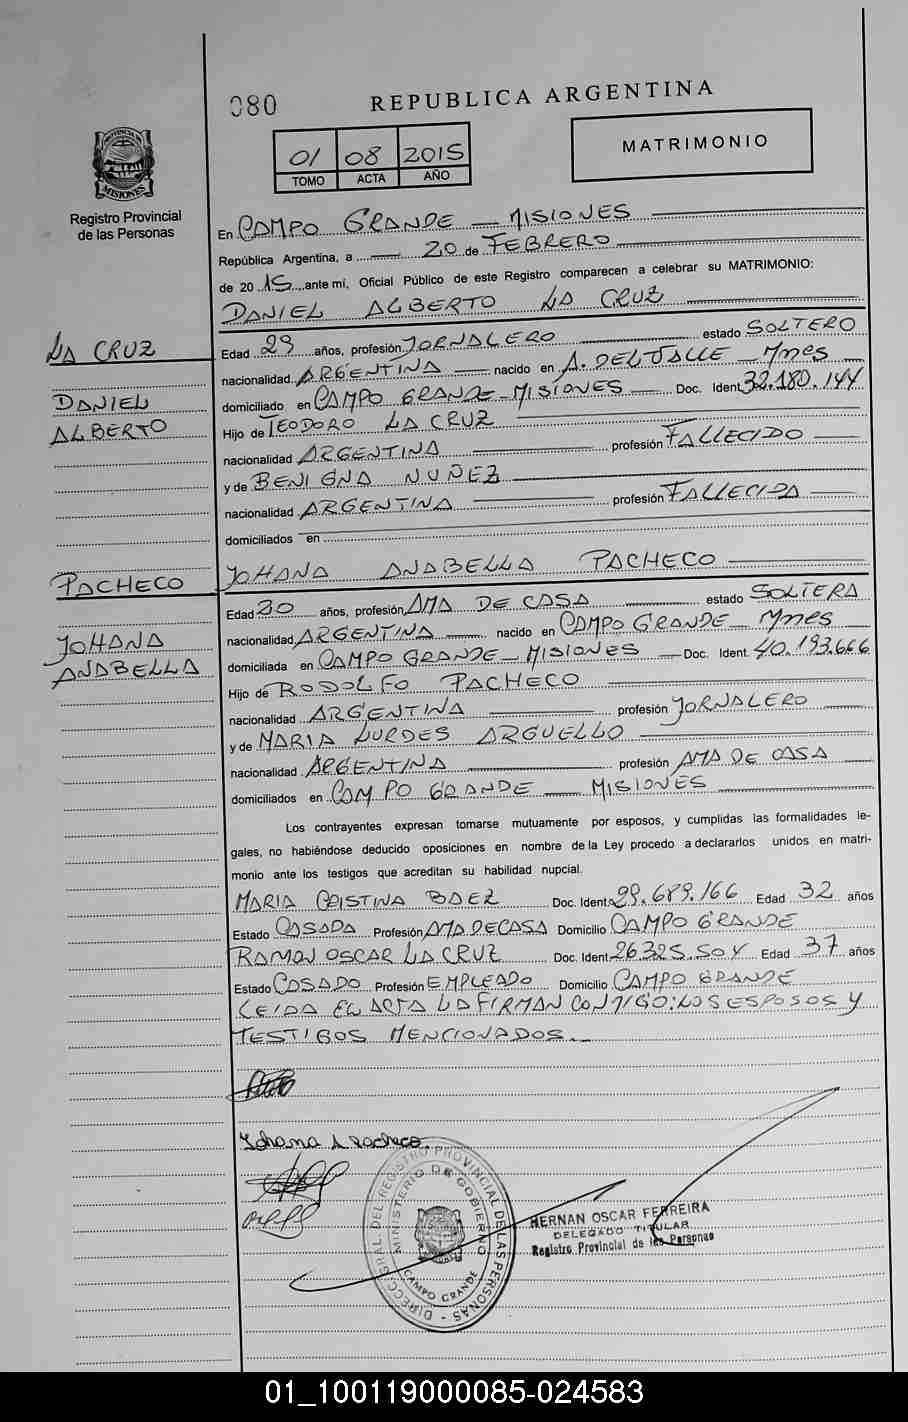 080
REPUBLICA ARGENTINA
01 08 2015
TOMO ACTA AÑO
MATRIMONIO
PROVINCIA DE MISIONES
Registro Provincial
de las Personas
En CAMPO GRANDE - MISIONES
República Argentina, a 20 de FEBRERO
de 20 15 ante mi, Oficial Público de este Registro comparecen a celebrar su MATRIMONIO:
DANIEL ALBERTO LA CRUZ
LA CRUZ
DANIEL
ALBERTO
Edad 29 años, profesión JORNALERO estado SOLTERO
nacionalidad ARGENTINA nacido en A. DEL VALLE - Mnes
domiciliado en CAMPO GRANDE - MISIONES Doc. Ident. 32.180.144
Hijo de TEODORO LA CRUZ
nacionalidad ARGENTINA profesión FALLECIDO
y de BENIGNA NUÑEZ
nacionalidad ARGENTINA profesión FALLECIDA
domiciliados en
JOHANA ANABELLA PACHECO
PACHECO
JOHANA
ANABELLA
Edad 20 años, profesión AMA DE CASA estado SOLTERA
nacionalidad ARGENTINA nacido en CAMPO GRANDE - Mnes
domiciliada en CAMPO GRANDE - MISIONES Doc. Ident. 40.193.666
Hijo de RODOLFO PACHECO
nacionalidad ARGENTINA profesión JORNALERO
y de MARIA LURDES ARGUELLO
nacionalidad ARGENTINA profesión AMA DE CASA
domiciliados en CAMPO GRANDE - MISIONES
Los contrayentes expresan tomarse mutuamente por esposos, y cumplidas las formalidades le-
gales, no habiéndose deducido oposiciones en nombre de la Ley procedo a declararlos unidos en matri-
monio ante los testigos que acreditan su habilidad nupcial.
MARIA CRISTINA BAEZ Doc. Ident. 29.689.166 Edad 32 años
Estado CASADA Profesión AMA DE CASA Domicilio CAMPO GRANDE
RAMON OSCAR LA CRUZ Doc. Ident. 26.325.504 Edad 37 años
Estado CASADO Profesión EMPLEADO Domicilio CAMPO GRANDE
LEIDA EL ACTA LA FIRMAN CONMIGO: LOS ESPOSOS Y
TESTIGOS MENCIONADOS.
Johana A Pacheco
DIRECC. GRAL. DEL REGISTRO PROVINCIAL DE LAS PERSONAS
MINISTERIO DE GOBIERNO
CAMPO GRANDE
HERNAN OSCAR FERREIRA
DELEGADO TITULAR
Registro Provincial de las Personas
01_100119000085-024583